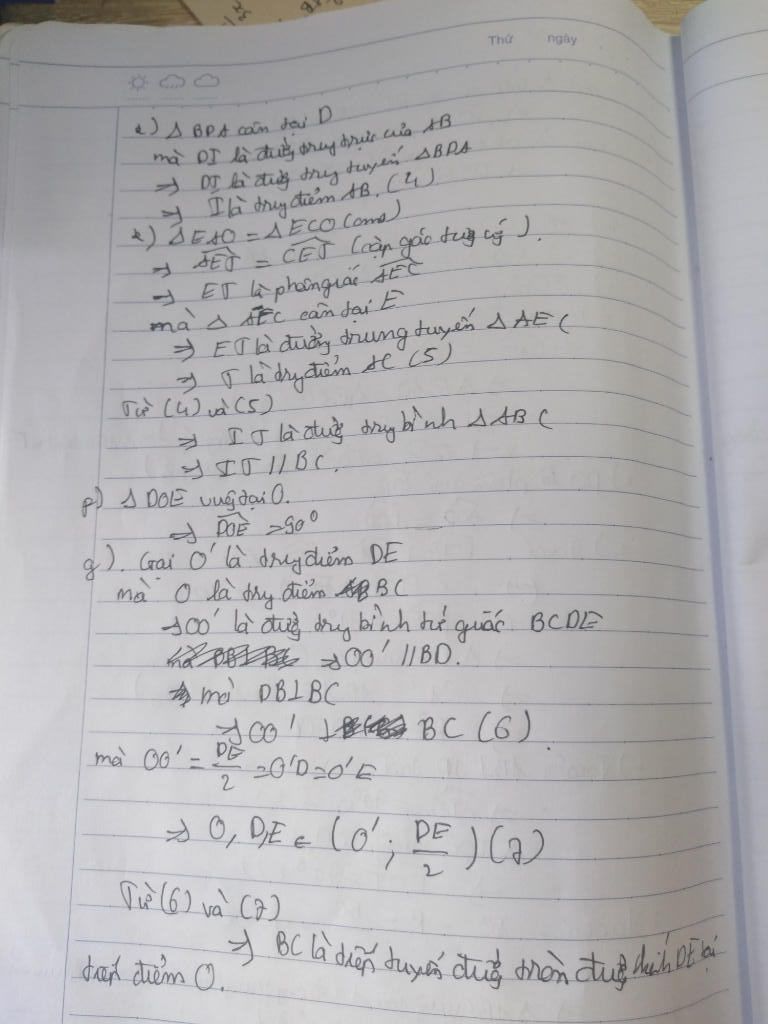 Thứ ngày
e) Δ BDA cân tại D
mà DI là đường trung trực của AB
=> DI là đường trung tuyến ΔBDA
=> I là trung điểm AB. (4)
*) ΔEAO = ΔECO (cmt)
=> AEJ = CEJ (cặp góc tương ứng).
=> EJ là phân giác AEC
mà Δ AEC cân tại E
=> EJ là đường trung tuyến Δ AEC
=> J là trung điểm AC (5)
Từ (4) và (5)
=> IJ là đường trung bình Δ ABC
=> IJ // BC.
f) Δ DOE vuông tại O.
=> DOE = 90°
g). Gọi O' là trung điểm DE
mà O là trung điểm BC
=> OO' là đường trung bình tứ giác BCDE
=> OO' // BD.
mà DB⊥BC
=> OO' ⊥ BC (6).
mà OO' = DE/2 = O'D = O'E
=> O, D, E ∈ (O' ; DE/2) (7)
Từ (6) và (7)
=> BC là tiếp tuyến đường tròn đường kính DE tại
tiếp điểm O.